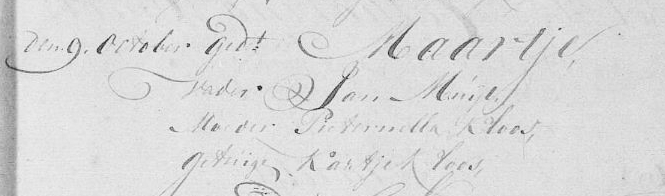 den 9. October ged:t Maartje,
Vader Jan Muijs,
Moeder Pieternella Kloos,
getuige Kaatje Kloos,